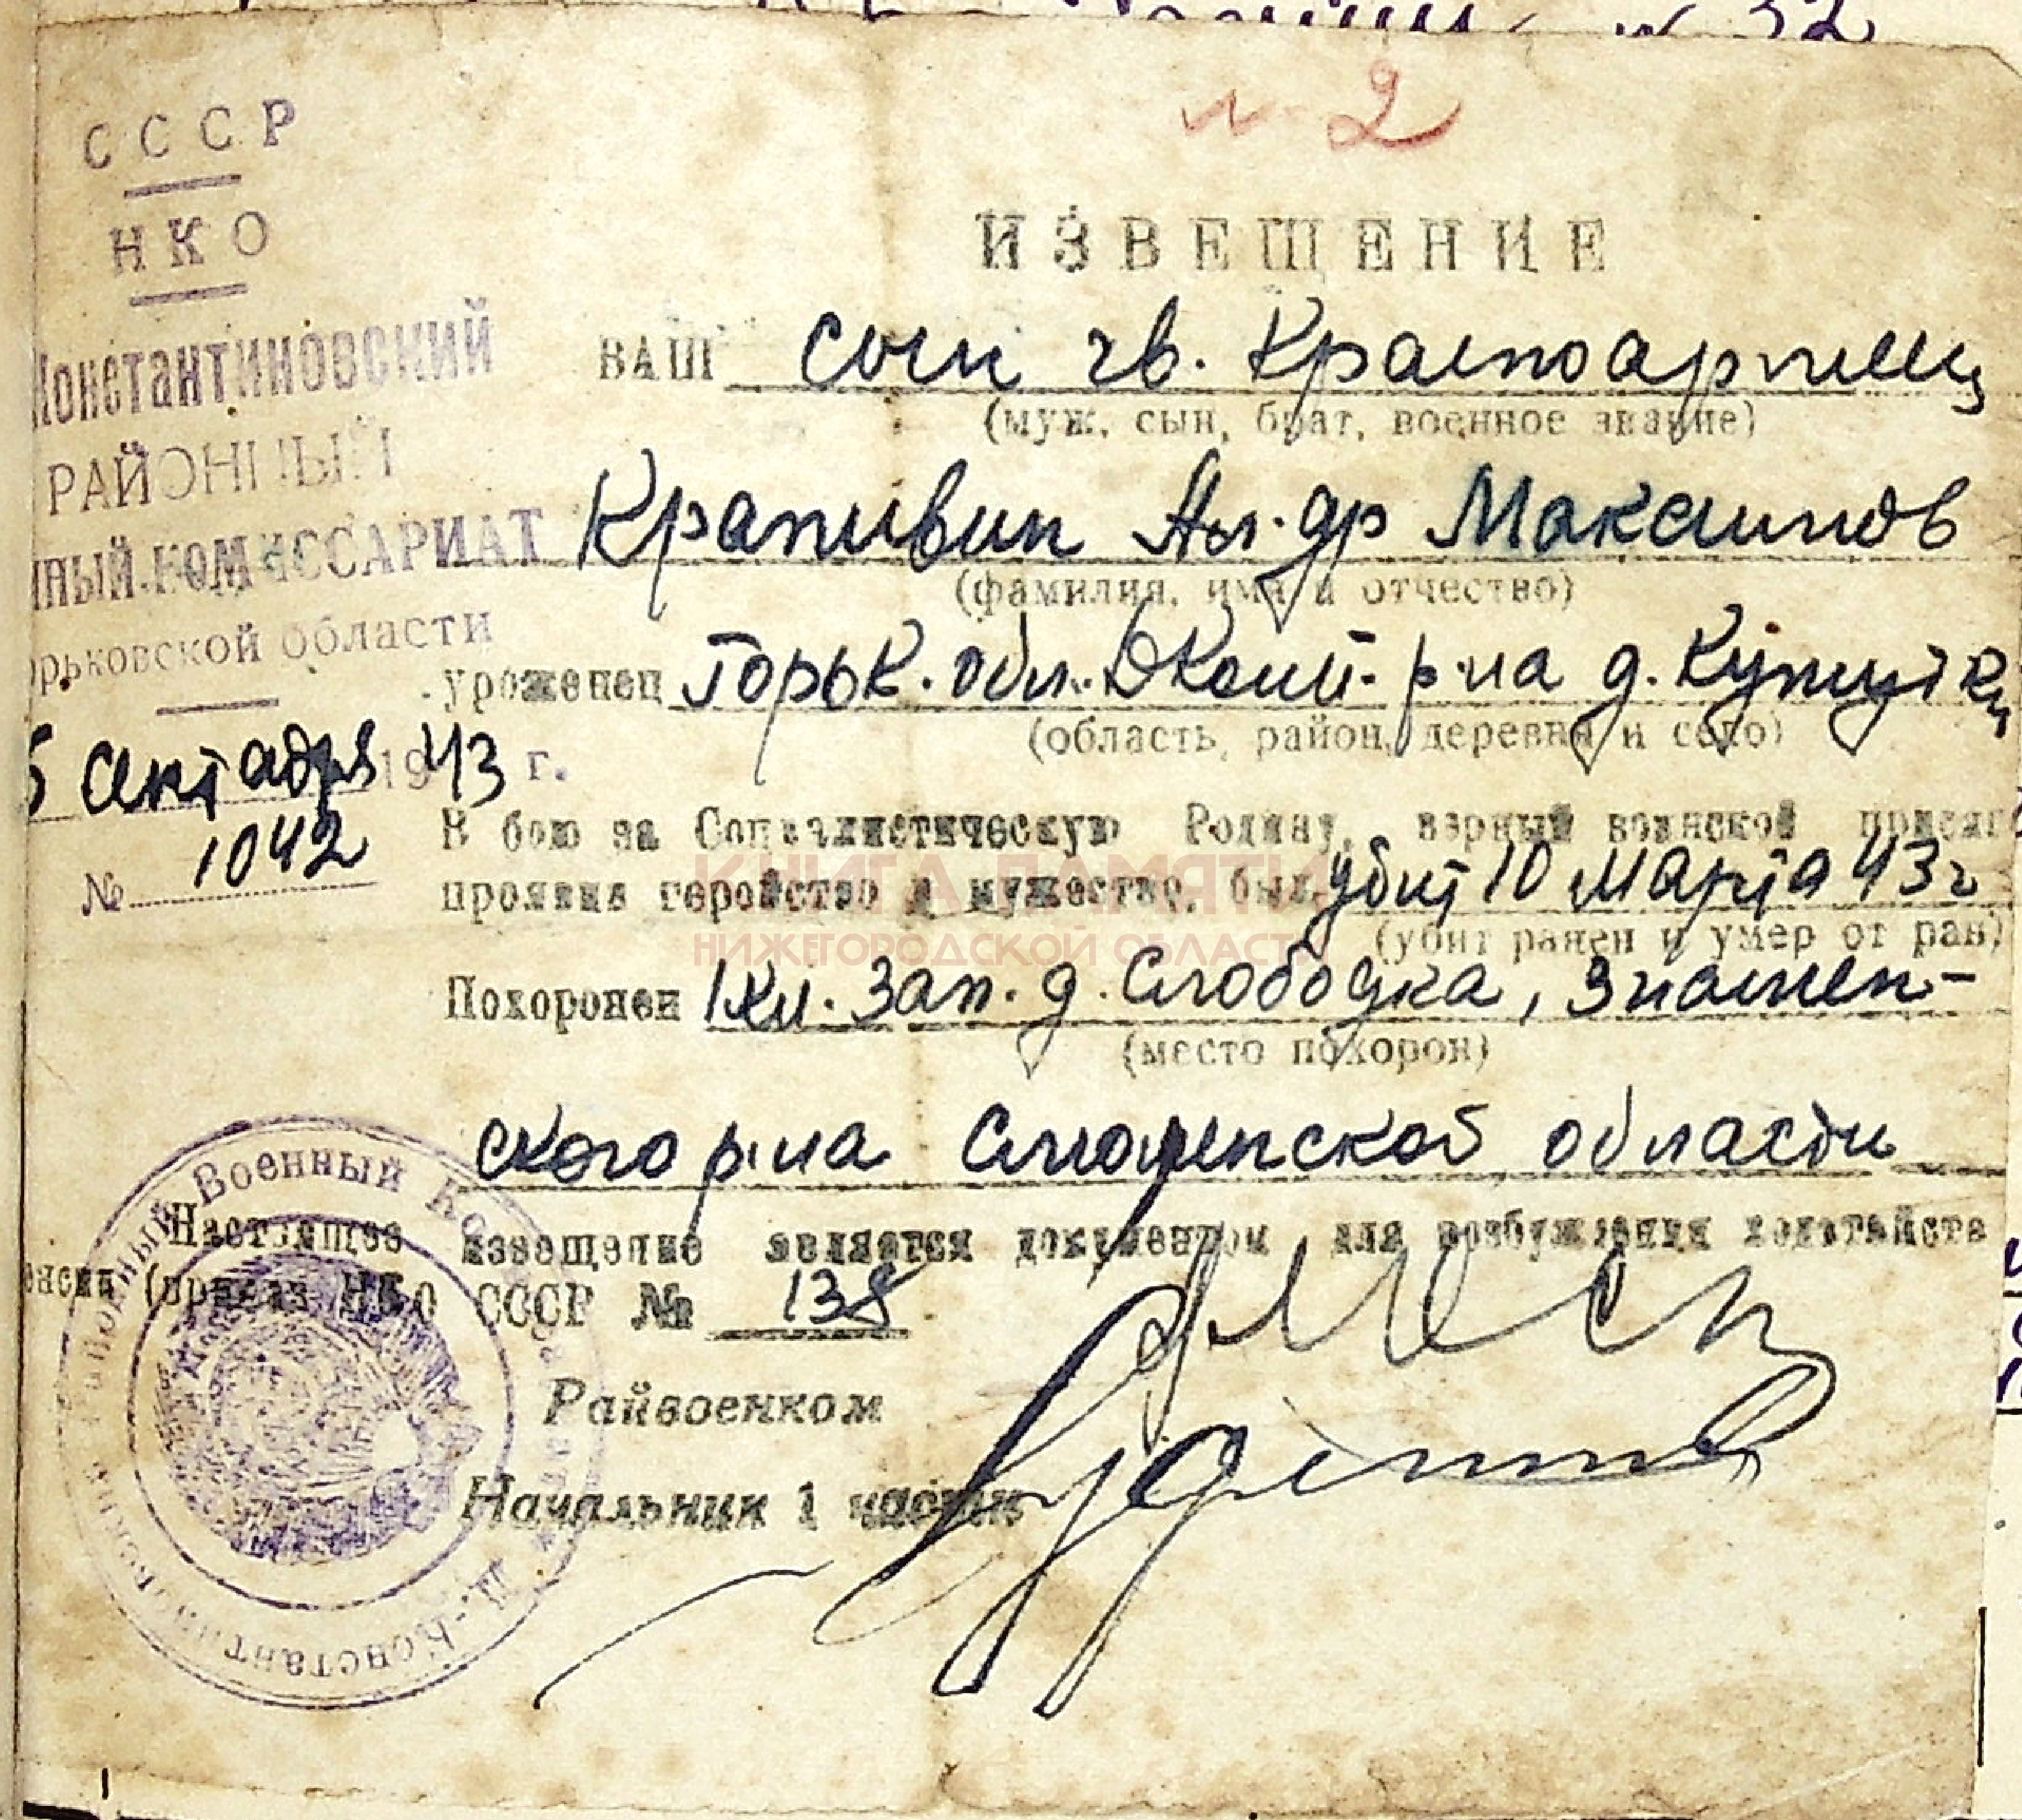 № 2
СССР
НКО
Константиновский
РАЙОННЫЙ
ный КОМИССАРИАТ
орьковской области
5 сентября 1943 г.
№ 1042
ИЗВЕЩЕНИЕ
ВАШ сын гв. Красноармеец
(муж, сын, брат, военное звание)
Крапивин Ал-др Максимов
(фамилия, имя и отчество)
уроженец Горьк. обл. ДКонст. р-на д.
(область, район, деревня и село)
В бою за Социалистическую Родину, верный воинской присяге
проявив геройство и мужество, был убит 10 марта 43 г
(убит ранен и умер от ран)
Похоронен 1 км. зап. д. Слободка, Знамен-
(место похорон)
ского р-на Смоленской области
Настоящее извещение является документом для возбуждения ходатайств
енсии (приказ НКО СССР № 138
Райвоенком
Начальник 1 части
Районный Военный Д.-Константиновский
КНИГА ПАМЯТИ
НИЖЕГОРОДСКОЙ ОБЛАСТИ